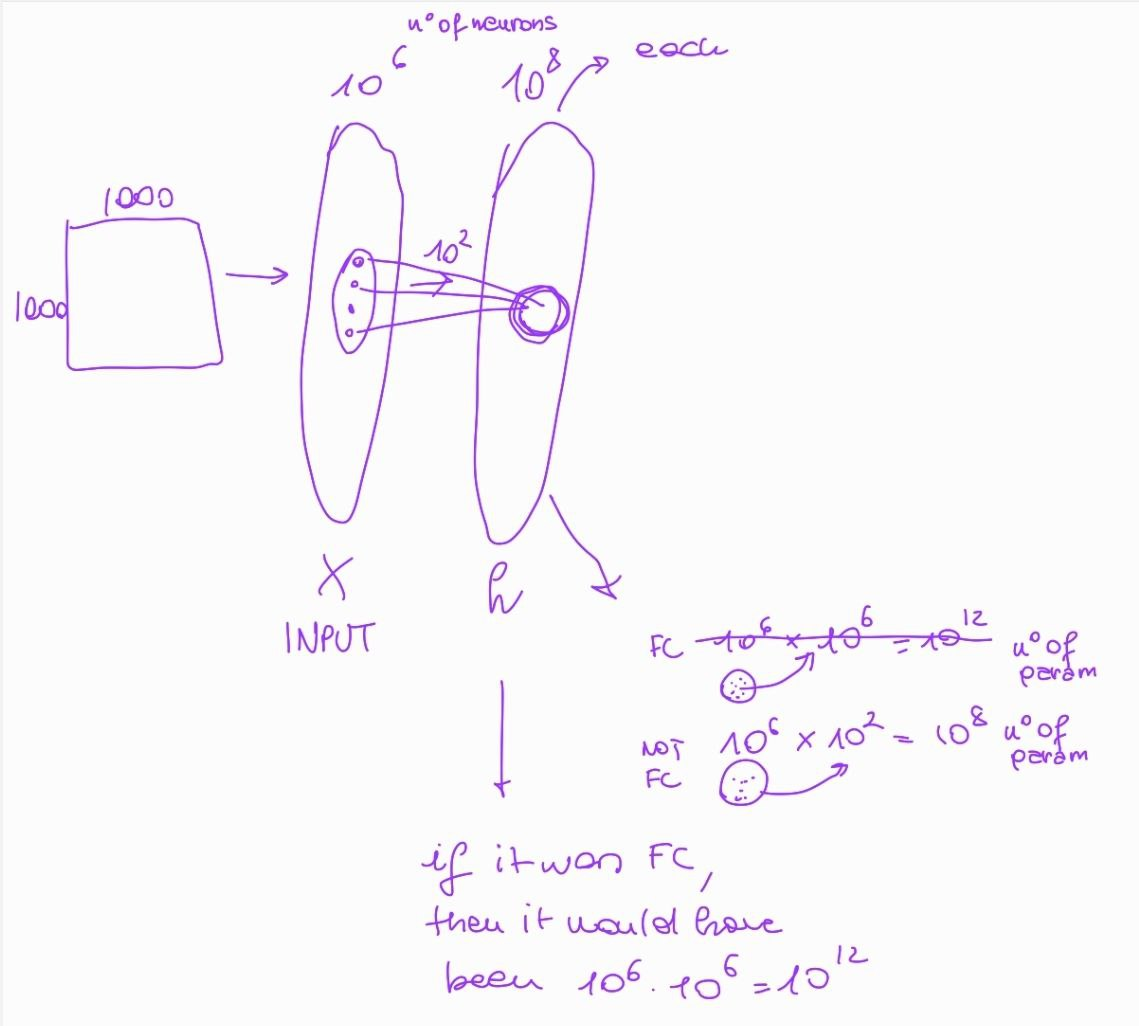 n° of neurons
10^6
10^8
each
1000
1000
10^2
X
INPUT
h
FC 10^6 x 10^6 = 10^12 n° of param
NOT FC 10^6 x 10^2 = 10^8 n° of param
if it was FC,
then it would have
been 10^6 . 10^6 = 10^12